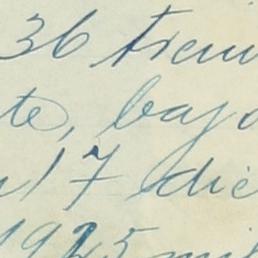 36 trein
te, bajo
17 dic
1925 mil